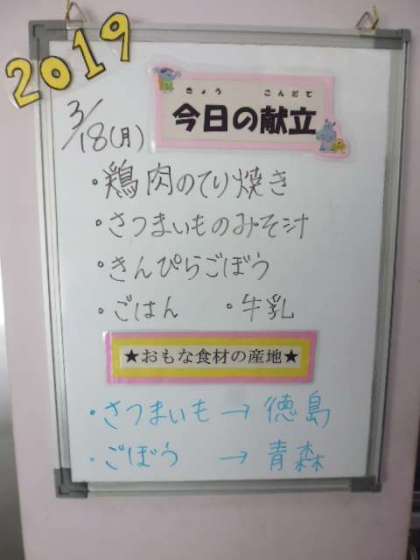 2019
きょう こんだて
今日の献立
3/18(月)
・鶏肉のてり焼き
・さつまいものみそ汁
・きんぴらごぼう
・ごはん ・牛乳
★おもな食材の産地★
・さつまいも→徳島
・ごぼう →青森